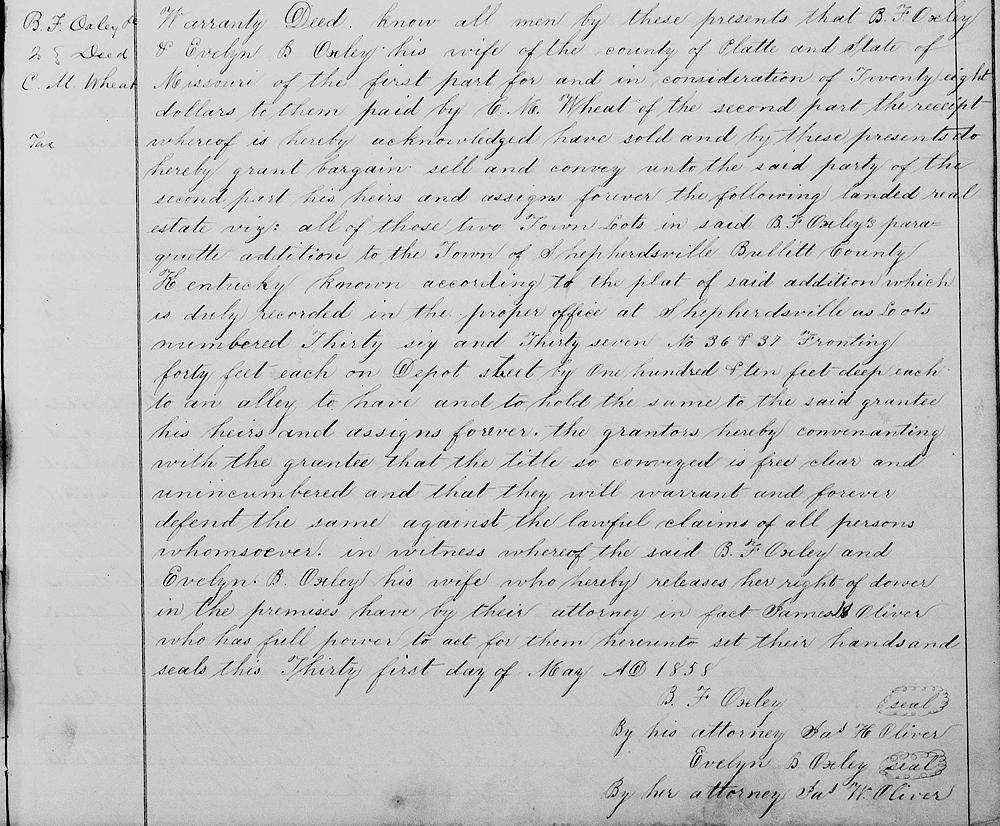 B. F. Oxley &c
2 } Deed
C. M. Wheat
Tax
Warranty Deed. Know all men by these presents that B. F. Oxley
& Evelyn B Oxley his wife of the county of Platte and State of
Missouri of the first part for and in consideration of Twenty eight
dollars to them paid by C. M. Wheat of the second part the receipt
whereof is hereby acknowledged have sold and by these presents do
hereby grant bargain sell and convey unto the said party of the
second part his heirs and assigns forever the following landed real
estate viz: all of those two Town Loots in said B. F Oxley's para=
quette addition to the Town of Shepherdsville Bullitt County
Kentucky known according to the plat of said addition which
is duly recorded in the proper office at Shepherdsville as Loots
numbered Thirty six and Thirty seven No 36 & 37 Fronting
forty feet each on Depot street by One hundred & ten feet deep each
to an alley, to have and to hold the same to the said grantee
his heirs and assigns forever. the grantors hereby convenanting
with the grantee that the title so conveyed is free clear and
unincumbered and that they will warrant and forever
defend the same against the lawful claims of all persons
whomsoever. in witness whereof the said B. F Oxley and
Evelyn. B. Oxley his wife who hereby releases her right of dower
in the premises have by their attorney in fact James Oliver
who has full power to act for them hereunto set their hands and
seals this Thirty first day of May AD 1858
B. F Oxley seal
By his attorney Jas H Oliver
Evelyn B. Oxley seal
By her attorney Jas W. Oliver